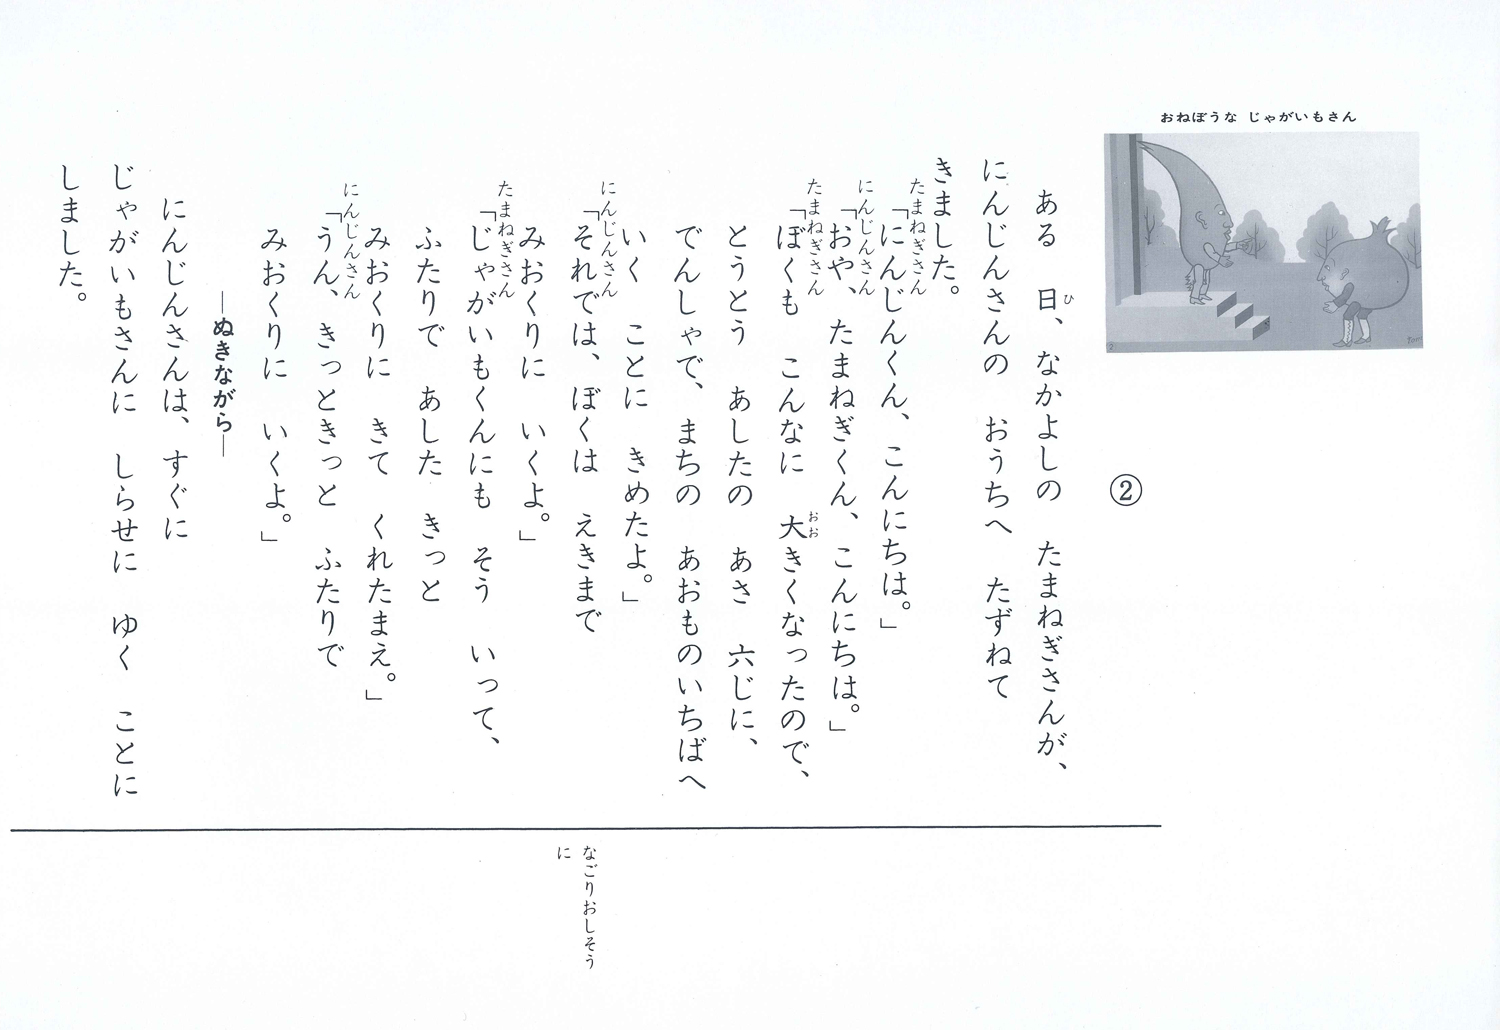 おねぼうな じゃがいもさん
②
ある 日、なかよしの たまねぎさんが、
にんじんさんの おうちへ たずねて
きました。
たまねぎさん
「にんじんくん、こんにちは。」
にんじんさん
「おや、たまねぎくん、こんにちは。」
たまねぎさん
「ぼくも こんなに 大きくなったので、
とうとう あしたの あさ 六じに、
でんしゃで、まちの あおものいちばへ
いく ことに きめたよ。」
にんじんさん
「それでは、ぼくは えきまで
みおくりに いくよ。」
たまねぎさん
「じゃがいもくんにも そう いって、
ふたりで あした きっと
みおくりに きて くれたまえ。」
にんじんさん
「うん、きっときっと ふたりで
みおくりに いくよ。」
―ぬきながら―
にんじんさんは、すぐに
じゃがいもさんに しらせに ゆく ことに
しました。
なごりおしそう
に